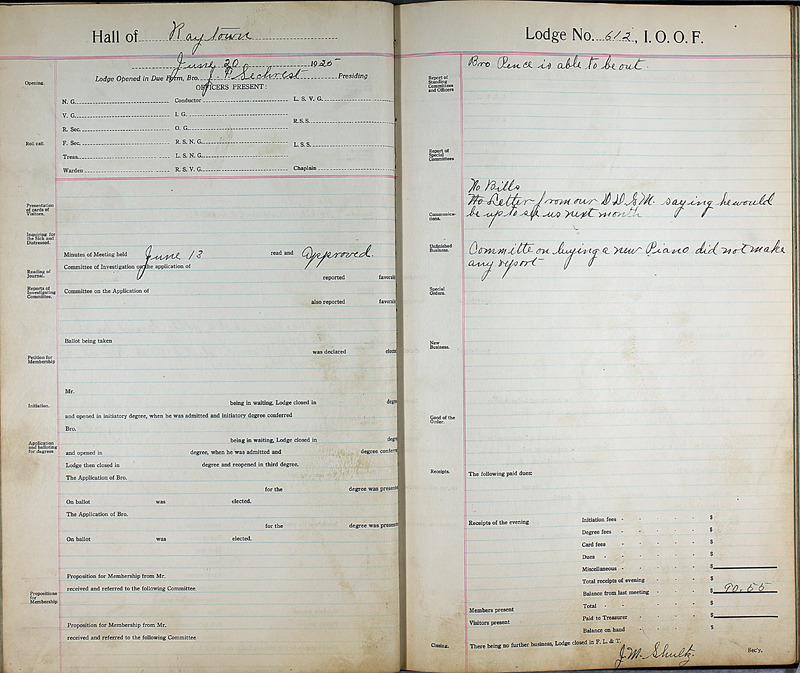 Hall of Raytown
June 20 1925
Lodge Opened in Due Form, Bro. J. P. Sechrest Presiding
Opening.
OFFICERS PRESENT:
N. G. Conductor L. S. V. G.
V. G. I. G. R.S.S.
R. Sec. O. G.
Roll call. F. Sec. R. S. N. G. L. S. S.
Treas. L. S. N. G.
Warden R. S. V. G. Chaplain
Presentation of cards of Visitors.
Inquiring for the Sick and Distressed.
Minutes of Meeting held June 13 read and approved.
Reading of Journal.
Committee of Investigation on the application of
reported favorab
Reports of Investigating Committee.
Committee on the Application of
also reported favorab
Ballot being taken
was declared elect
Petition for Membership
Mr.
Initiation.
being in waiting, Lodge closed in degre
and opened in initiatory degree, when he was admitted and initiatory degree conferred
Bro.
Application and balloting for degrees
being in waiting, Lodge closed in degr
and opened in degree, when he was admitted and degree conferr
Lodge then closed in degree and reopened in third degree.
The Application of Bro.
for the degree was present
On ballot was elected.
The Application of Bro.
for the degree was present
On ballot was elected.
Proposition for Membership from Mr.
received and referred to the following Committee
Propositions for Membership
Proposition for Membership from Mr.
received and referred to the following Committee
Lodge No. 612, I. O. O. F.
Bro Pence is able to be out.
Report of Standing Committees and Officers
Report of Special Committees
No Bills
No Letter from our D D G M. saying he would
be up to see us next month
Communications.
Unfinished Business.
Committe on buying a new Piano did not make
any report
Special Orders.
New Business.
Good of the Order.
Receipts. The following paid dues:
Receipts of the evening Initiation fees $
Degree fees $
Card fees $
Dues $
Miscellaneous $
Total receipts of evening $
Balance from last meeting $ 90.55
Members present Total $
Visitors present Paid to Treasurer $
Balance on hand $
Closing. There being no further business, Lodge closed in F. L. & T.
J. M. Shultz. Sec'y.